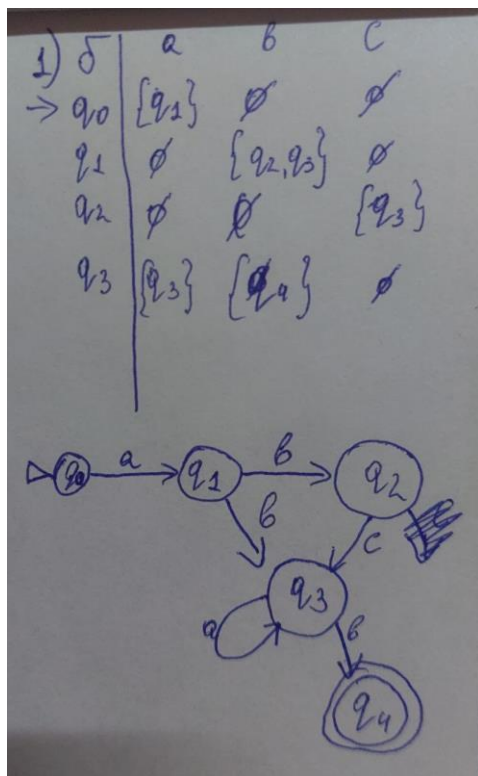 1) δ a b c
→ q0 {q1} ∅ ∅
q1 ∅ {q2,q3} ∅
q2 ∅ ∅ {q3}
q3 {q3} {q4} ∅
q0 a q1 b q2
b c
q3
a b
q4